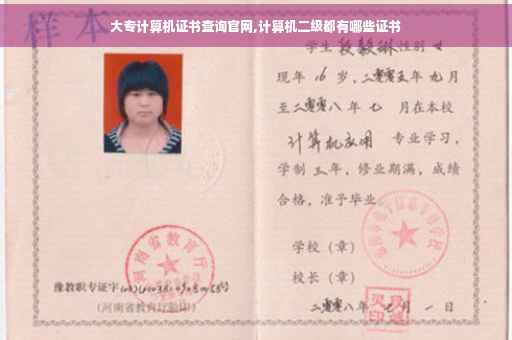 大专计算机证书查询官网,计算机二级都有哪些证书
样本
学生段毅琳性别女
现年16岁,二零零五年九月
至二零零八年七月在本校
计算机应用专业学习,
学制三年,修业期满,成绩
合格,准予毕业
学校(章)
校长(章)
二零零八年七月一日
河南省教育厅
豫教职专证字
(河南省教育厅验印)